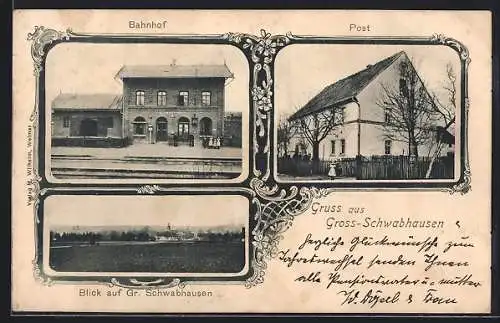 Bahnhof
Post
Verlag R. Wilhelm, Weimar
Gruss aus
Gross-Schwabhausen
Herzliche Glückwünsche zum
Jahreswechsel senden Ihnen
alle Pensionsvater u. mutter
& Frau
Blick auf Gr. Schwabhausen